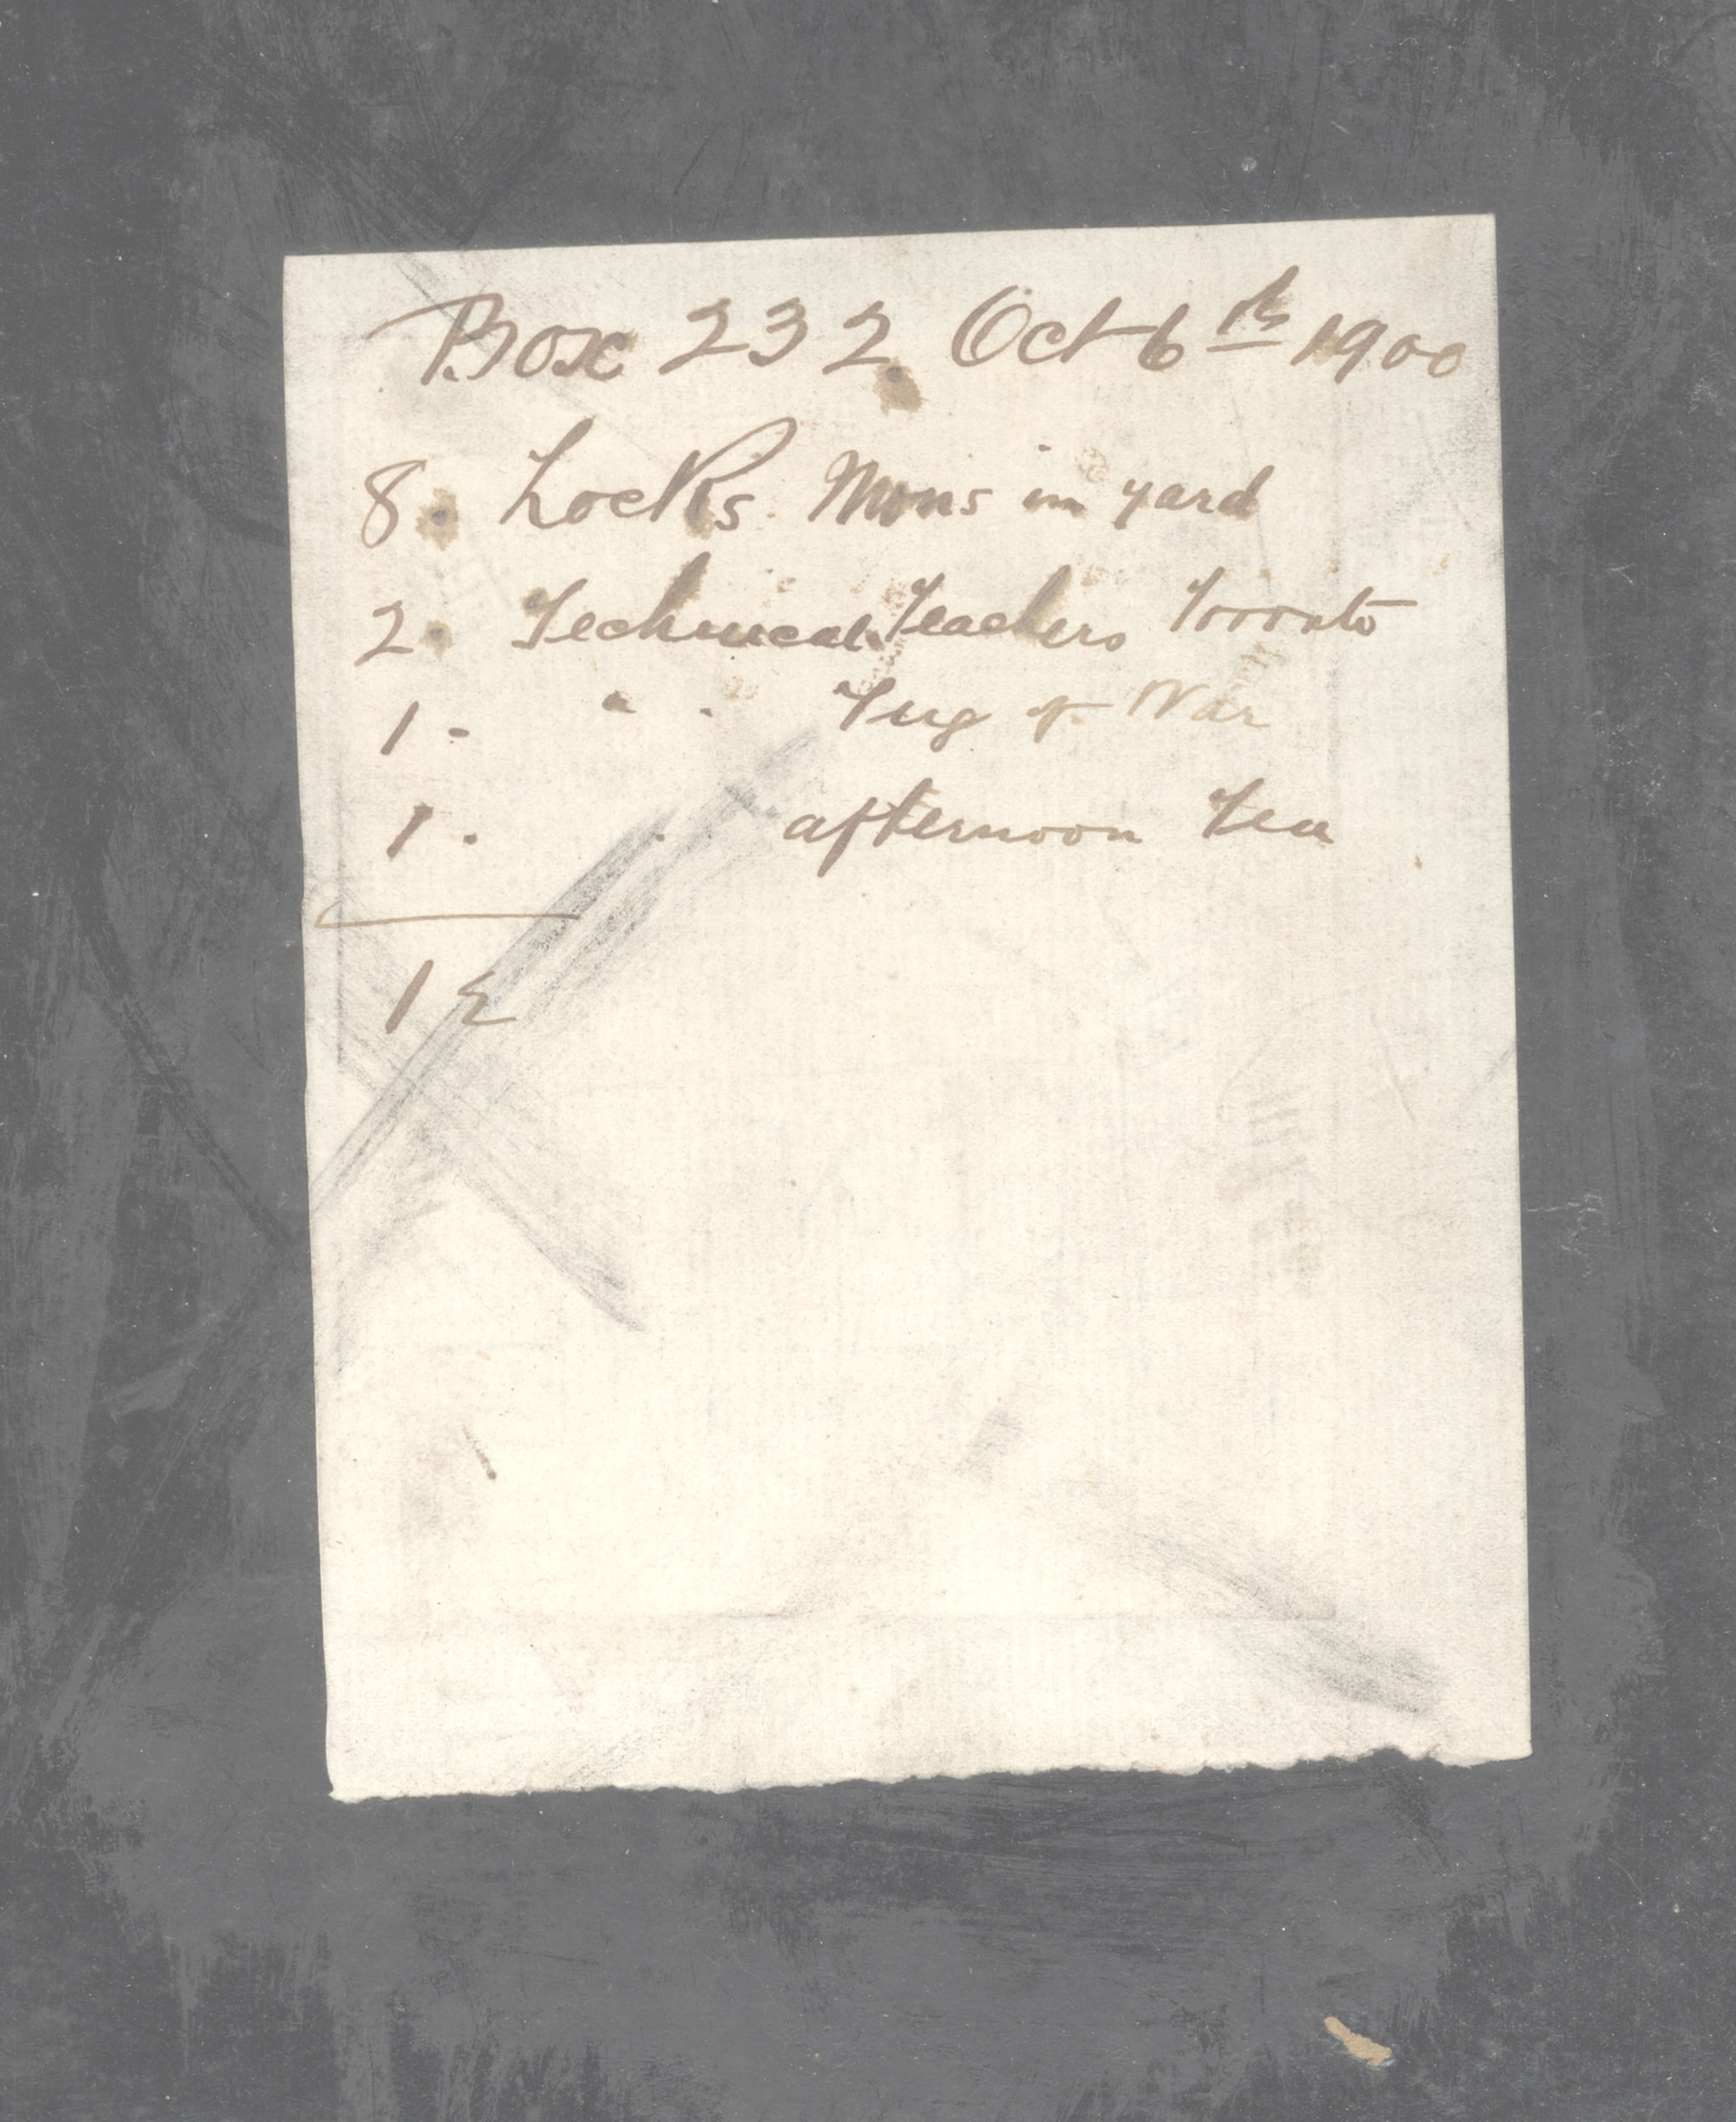 Box 232 Oct 6th 1900
8. Locks Mons in yard
2. Technical Teachers Toronto
1 - " " Tug of War
1. " " afternoon Tea
12